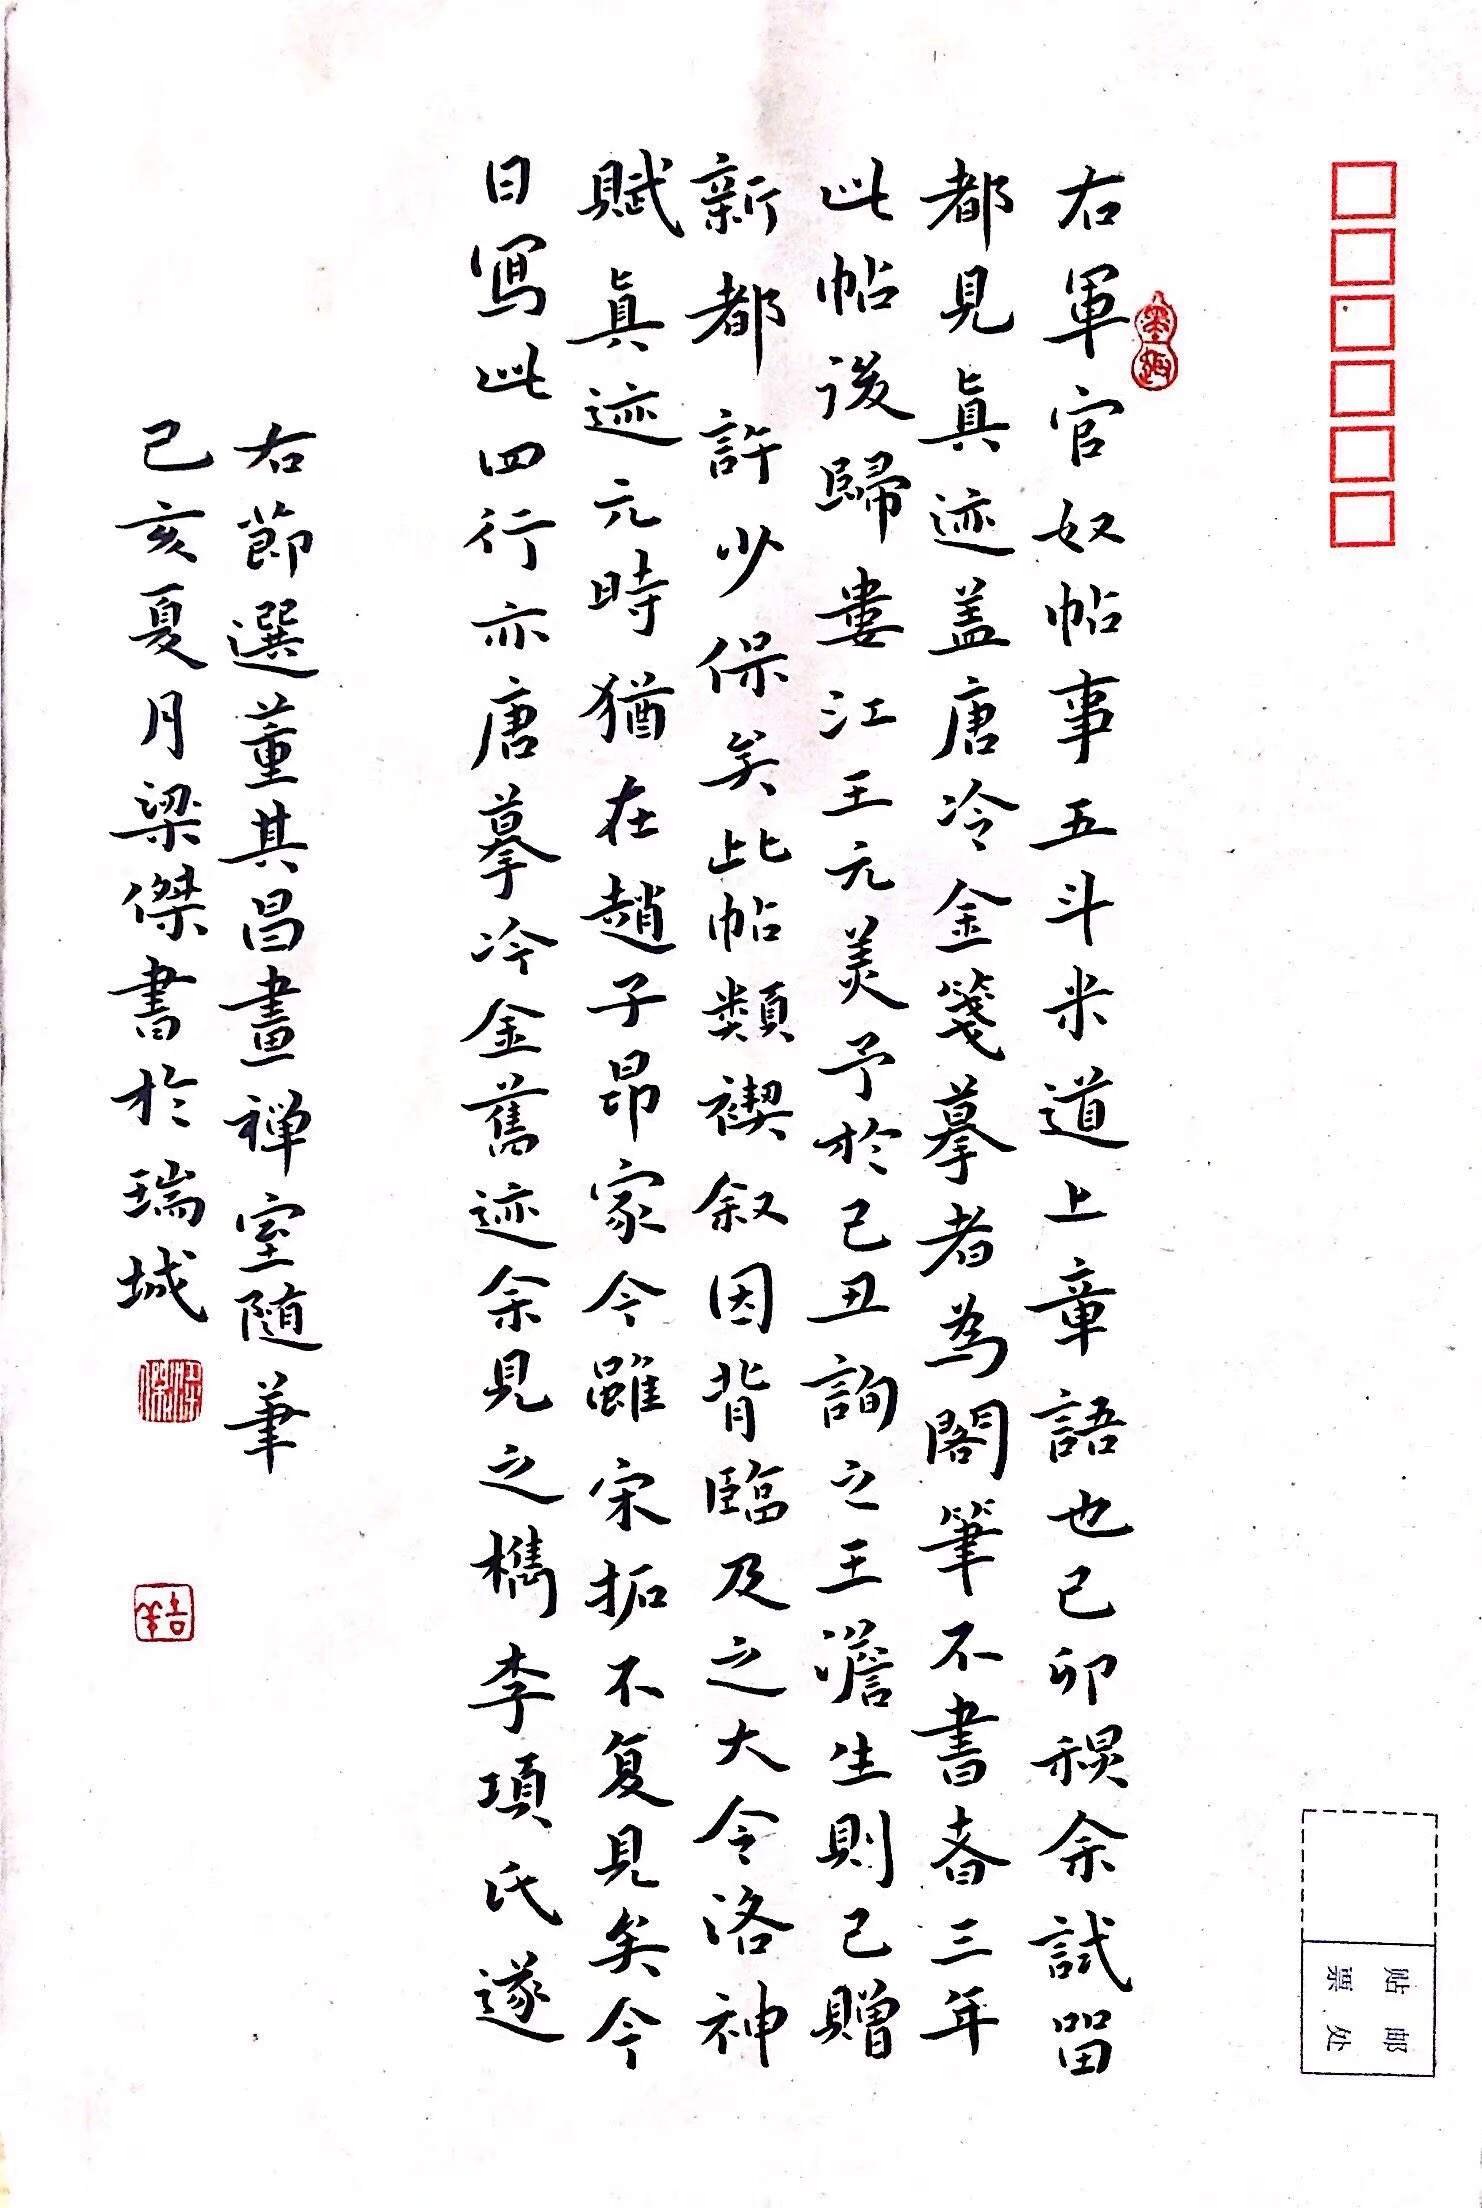 右軍官奴帖事五斗米道上章語也己卯秋余試留
都見眞迹盖唐冷金箋摹者為閣筆不書者三年
此帖後歸婁江王元美予於己丑詢之王澹生則已贈
新都許少保矣此帖類禊叙因背臨及之大令洛神
賦眞迹元時猶在趙子昂家今雖宋拓不复見矣今
日寫此四行亦唐摹冷金舊迹余見之檇李項氏遂
右節選董其昌畫禅室随筆
己亥夏月梁傑書於瑞城
梁傑
贴邮
票处